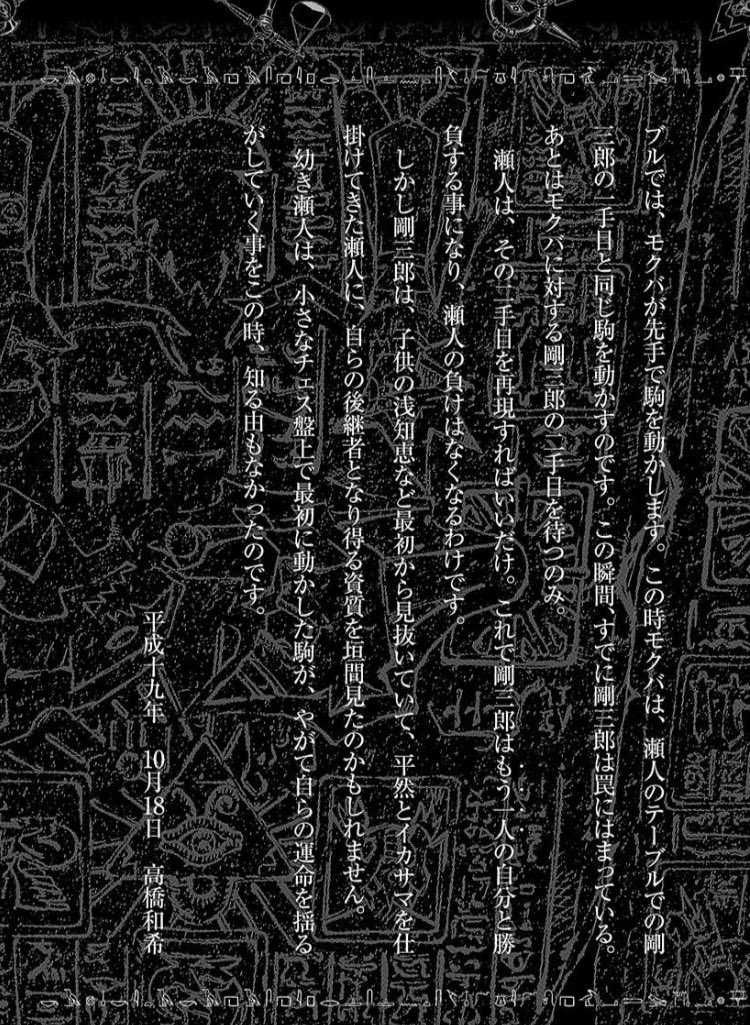 ブルでは、モクバが先手で駒を動かします。この時モクバは、瀬人のテーブルでの剛
三郎の二手目と同じ駒を動かすのです。この瞬間、すでに剛三郎は罠にはまっている。
あとはモクバに対する剛三郎の二手目を待つのみ。
瀬人は、その二手目を再現すればいいだけ。これで剛三郎はもう一人の自分と勝
負する事になり、瀬人の負けはなくなるわけです。
しかし剛三郎は、子供の浅知恵など最初から見抜いていて、平然とイカサマを仕
掛けてきた瀬人に、自らの後継者となり得る資質を垣間見たのかもしれません。
幼き瀬人は、小さなチェス盤上で最初に動かした駒が、やがて自らの運命を揺る
がしていく事をこの時、知る由もなかったのです。
平成十九年 10月18日 高橋和希